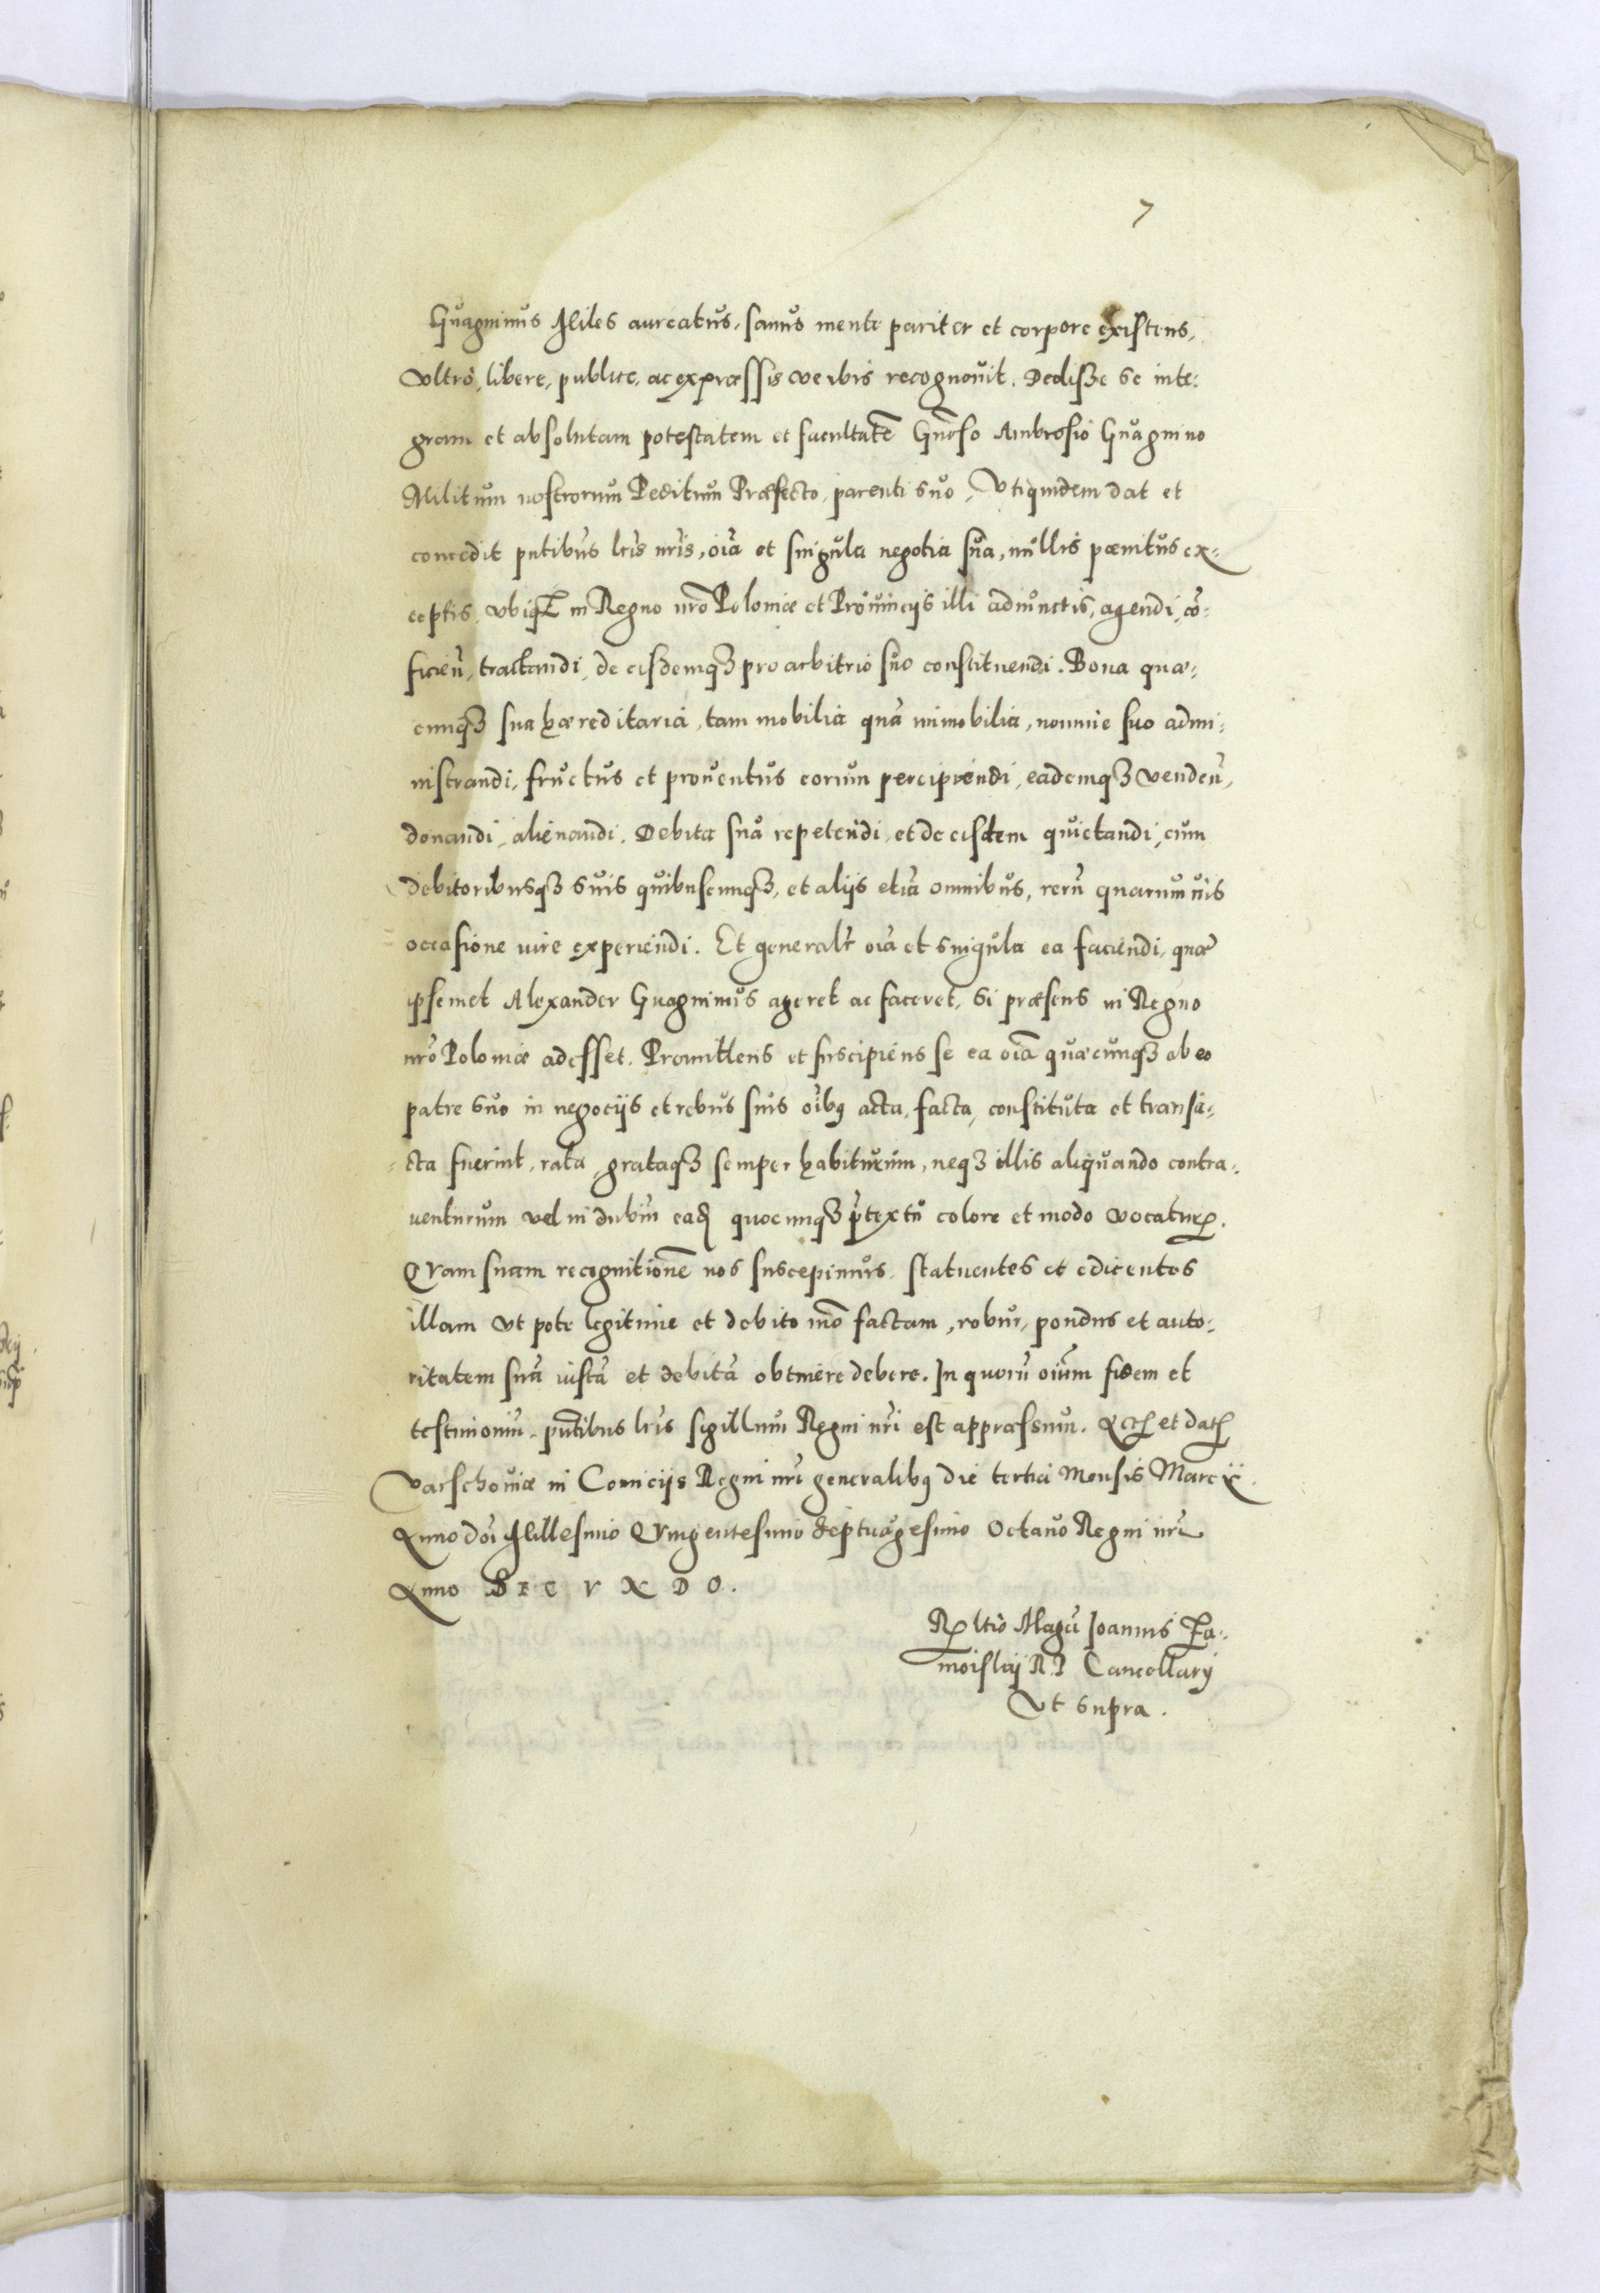 7
Guagninus Miles aureatus, sanus mente pariter et corpore existens,
Vltrò, libere, publice, ac expræssis verbis recognouit. Dedisse se inte:
gram et absolutam potestatem et facultatē Gnōso Ambrosio Guagnino
Militum nostrorum Peditum Præfecto, parenti suo, Vtiquidem dat et
concedit pntibus lris nris, oīa et singula negotia sua, nullis pœnitus ex:
ceptis, vbiqȝ in Regno nrō Poloniæ et Prouincijs illi adiunctis, agendi, cō:
ficien̄, tractandi, de eisdemqȝ pro arbitrio suo constituendi. Bona quæ:
cunqȝ sua hæreditaria, tam mobilia quā immobilia, nomine suo admi:
nistrandi, fructus et prouentus eorum percipiendi, eademqȝ venden̄,
donandi, alienandi. Debita sua repetendi, et de eisdem quietandi, cum
debitoribusqȝ suis quibuscunqȝ, et alijs etiā omnibus, rerū quarumuis
occasione iure experiendi. Et generalr oīa et singula ea faciendi, quæ
ipsemet Alexander Guagninus ageret ac faceret, si præsens in Regno
nrō Poloniæ adesset. Promittens et suscipiens se ea oīa quæcunqȝ ab eo
patre suo in negocijs et rebus suis oībus acta, facta, constituta et transa:
cta fuerint, rata, grataqȝ semper habiturum, neqȝ illis aliquando contra:
uenturum vel in dubiū ead quocunqȝ prtextu colore et modo vocatur.
Quam suam recognitionē nos suscepimus, statuentes et edicentes
illam vt pote legitime et debito mō factam, robur, pondus et auto:
ritatem suā iustā et debitā obtinere debere. In quorū oīum fidem et
testimoniū, pntibus lris sigillum Regni nri est appræssum. Act et dat
Varschouiæ in Comicijs Regni nri generalibus die tertia Mensis Marcij.
Anno doī Millesimo Quingentesimo Septuagesimo Octauo Regni nri
Anno SECVNDO.
R ltio Magci Joannis Za:
moiskij R. P. Cancellarij
Vt supra.